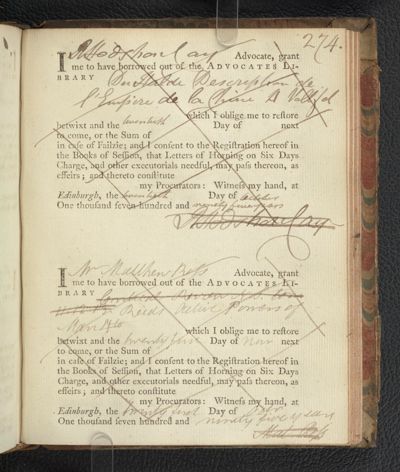 274.
I Hodshon Cay Advocate, grant
me to have borrowed out of the ADVOCATES LI-
BRARY Du Halde Description de
l'Empire de la Chine 4 Vol fol
which I oblige me to restore
betwixt and the twentieth Day of next
to come, or the Sum of
in case of Failzie; and I consent to the Registration hereof in
the Books of Session, that Letters of Horning on Six Days
Charge, and other executorials needful, may pass thereon, as
effeirs; and thereto constitute
my Procurators: Witness my hand, at
Edinburgh, the twentieth Day of
One thousand seven hundred and ninety five years
Hodshon Cay
I Mr Matthew Ross Advocate, grant
me to have borrowed out of the ADVOCATES LI-
BRARY
Reids Active Powers of
Man 4to
which I oblige me to restore
betwixt and the twenty first Day of Nov next
to come, or the Sum of
in case of Failzie; and I consent to the Registration hereof in
the Books of Session, that Letters of Horning on Six Days
Charge, and other executorials needful, may pass thereon, as
effeirs; and thereto constitute
my Procurators: Witness my hand, at
Edinburgh, the twenty first Day of
One thousand seven hundred and ninety five years
Matt Ross